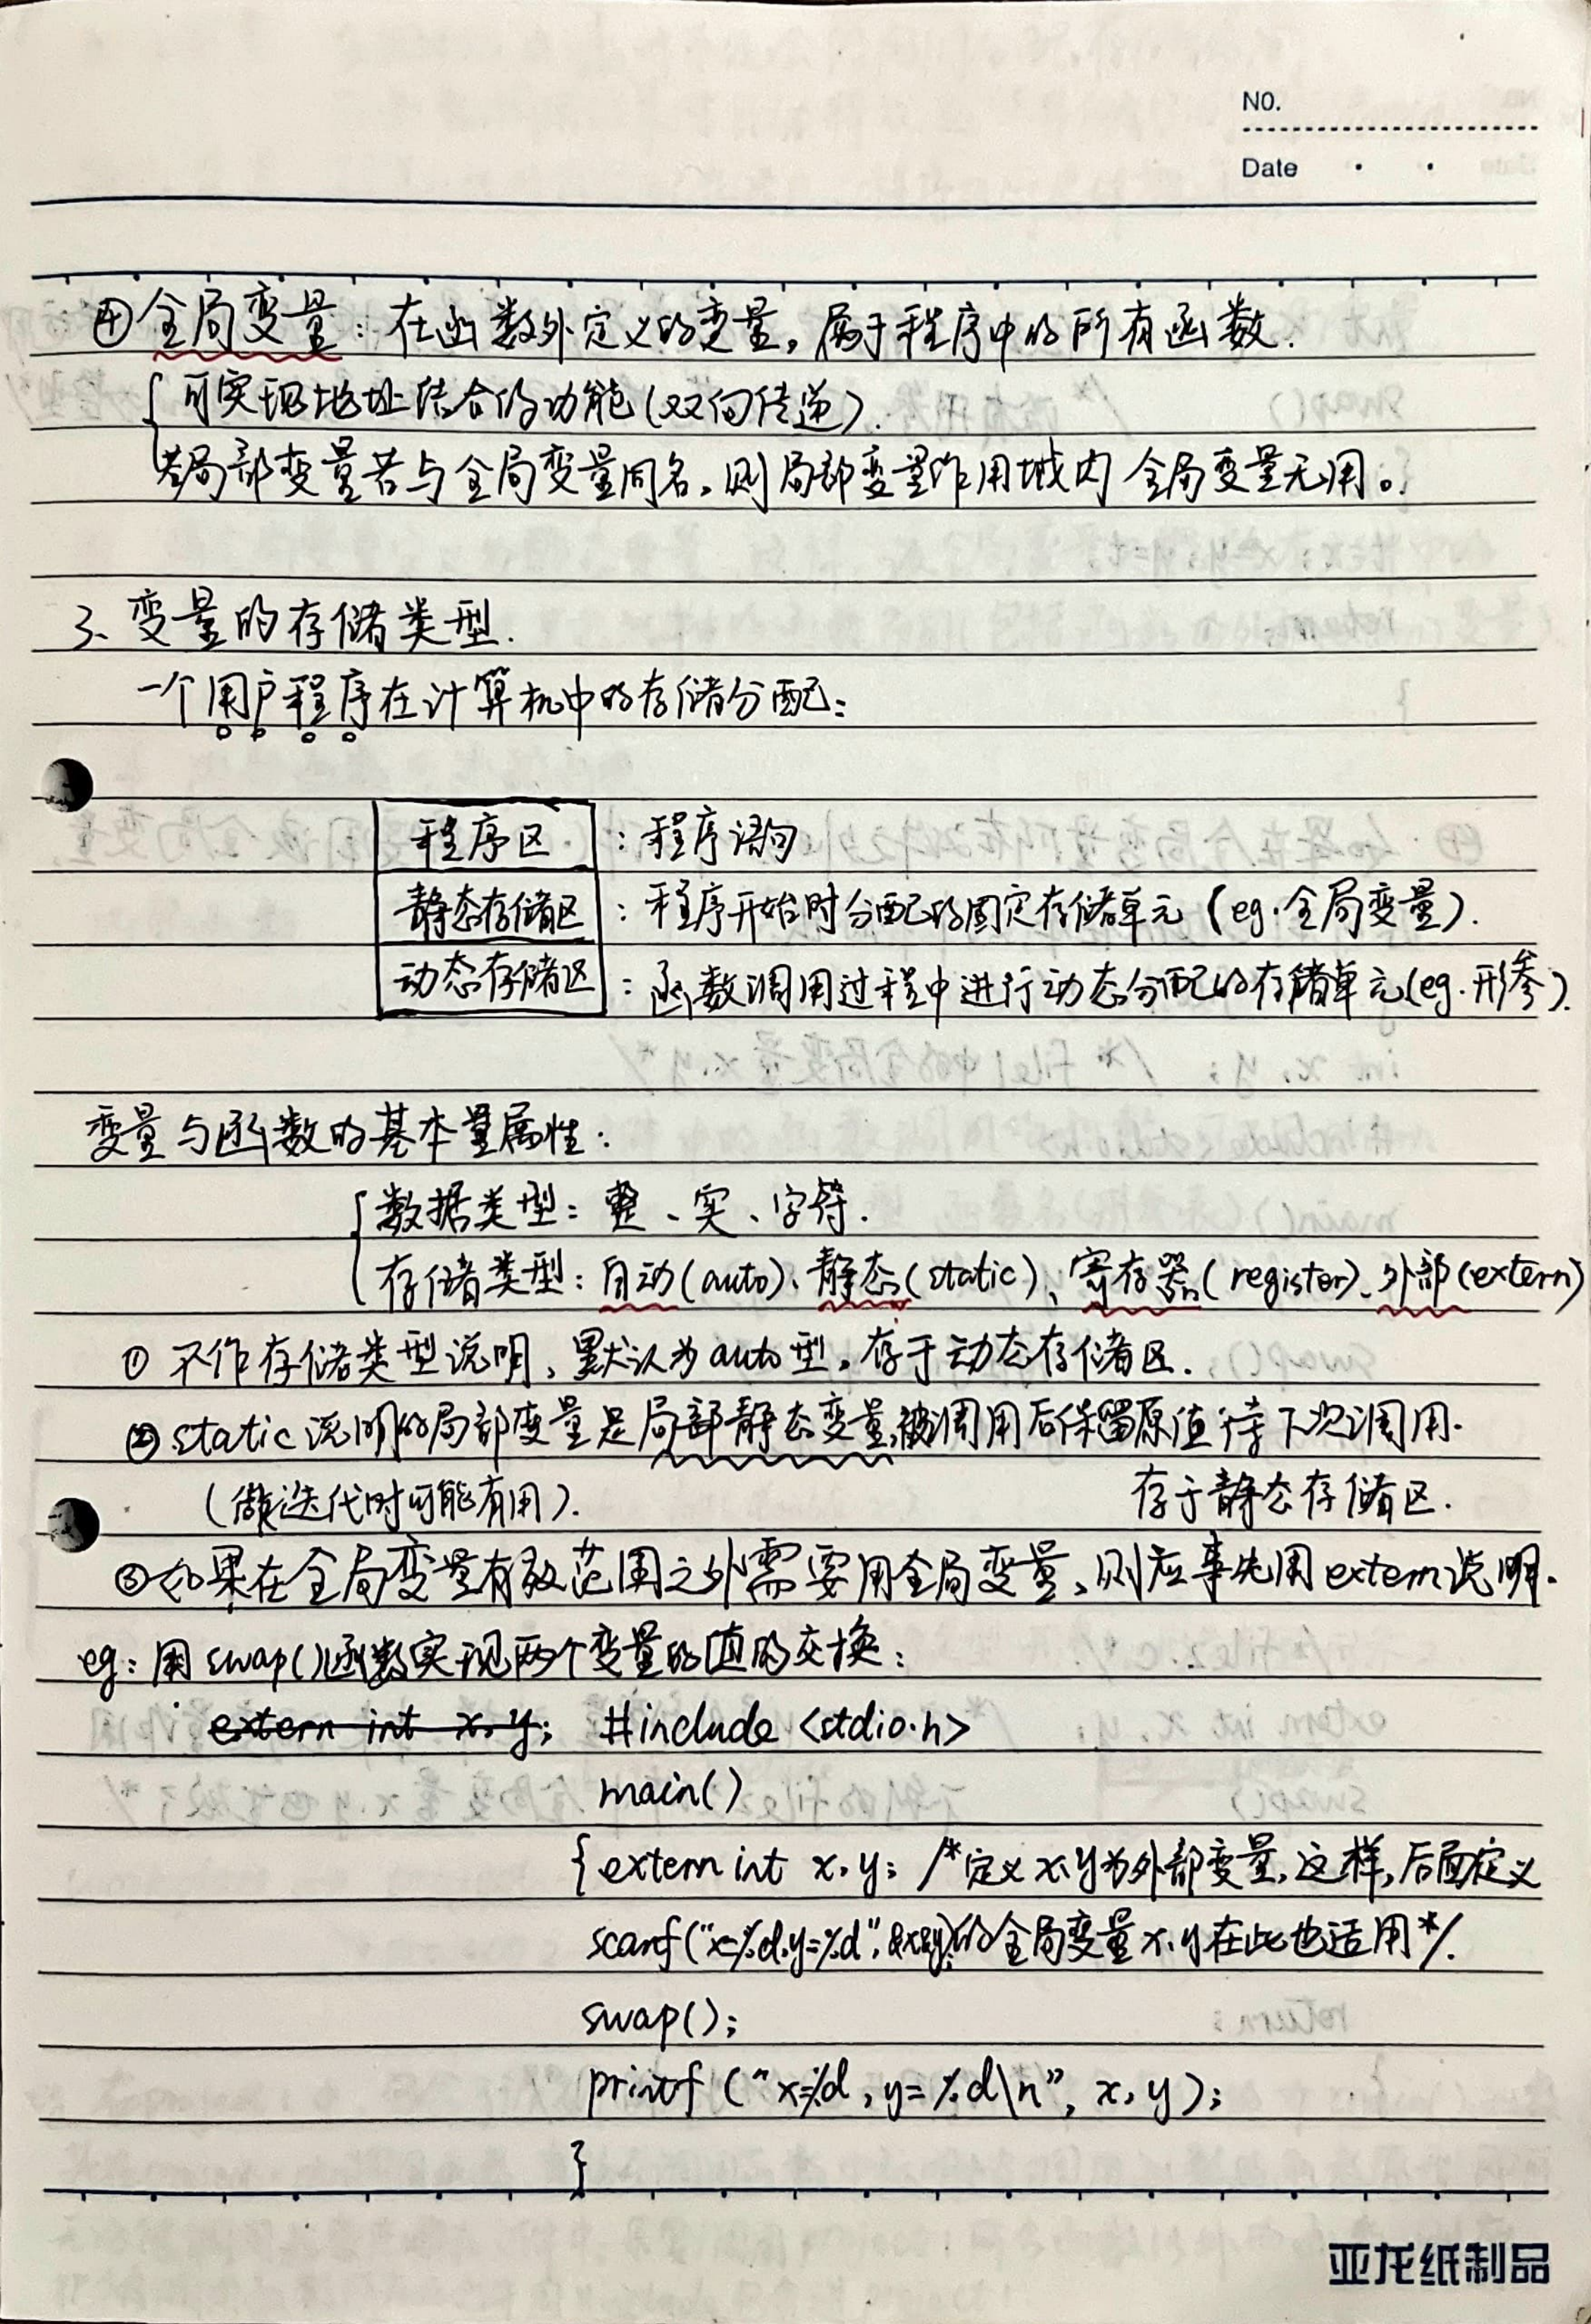 NO.
Date · ·
④全局变量：在函数外定义的变量，属于程序中的所有函数.
可实现地址结合的功能(双向传递).
若局部变量若与全局变量同名，则局部变量作用域内 全局变量无用。
3、变量的存储类型.
一个用户程序在计算机中的存储分配：
程序区：程序语句
静态存储区：程序开始时分配的固定存储单元 (eg.全局变量).
动态存储区：函数调用过程中进行动态分配的存储单元(eg.形参).
变量与函数的基本量属性：
数据类型：整、实、字符.
存储类型：自动(auto)、静态(static)、寄存器(register)、外部(extern)
① 不作存储类型说明，默认为auto型，存于动态存储区.
② static说明的局部变量是局部静态变量，被调用后保留原值待下次调用.
(做迭代时可能有用). 存于静态存储区.
③如果在全局变量有效范围之外需要用全局变量，则应事先用extern说明.
eg：用swap()函数实现两个变量的值的交换：
extern int x,y; #include <stdio.h>
main()
{extern int x,y; /*定义x、y为外部变量,这样,后面定义
scanf("x=%d,y=%d",&x,&y);的全局变量x、y在此也适用*/.
swap();
printf("x=%d,y=%d\n", x, y);
}
亚龙纸制品